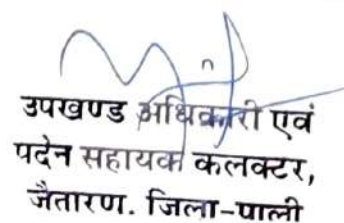 उपखण्ड अधिकारी एवं
पदेन सहायक कलक्टर,
जैतारण. जिला-पाली